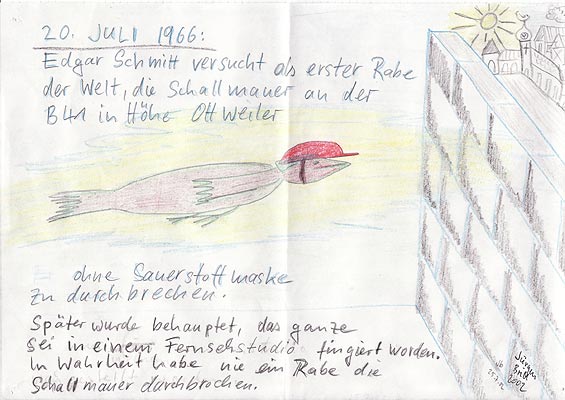 20. JULI 1966:
Edgar Schmitt versucht als erster Rabe
der Welt, die Schallmauer an der
B41 in Höhe Ottweiler
ohne Sauerstoffmaske
zu durchbrechen.
Später wurde behauptet, das ganze
sei in einem Fernsehstudio fingiert worden.
In Wahrheit habe nie ein Rabe die
Schallmauer durchbrochen.
Jürgen
2002